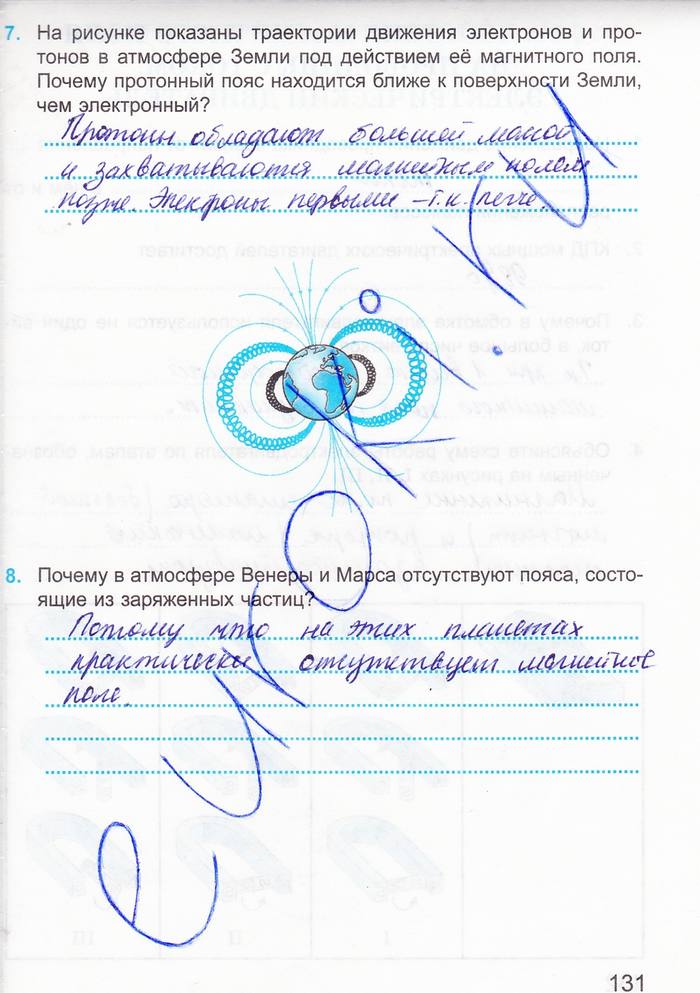 7. На рисунке показаны траектории движения электронов и про-
тонов в атмосфере Земли под действием её магнитного поля.
Почему протонный пояс находится ближе к поверхности Земли,
чем электронный?
Протоны обладают большей массой
и захватываются магнитным полем
позже. Электроны первыми – т.к. легче.
8. Почему в атмосфере Венеры и Марса отсутствуют пояса, состо-
ящие из заряженных частиц?
Потому что на этих планетах
практически отсутствует магнитное
поле.
131